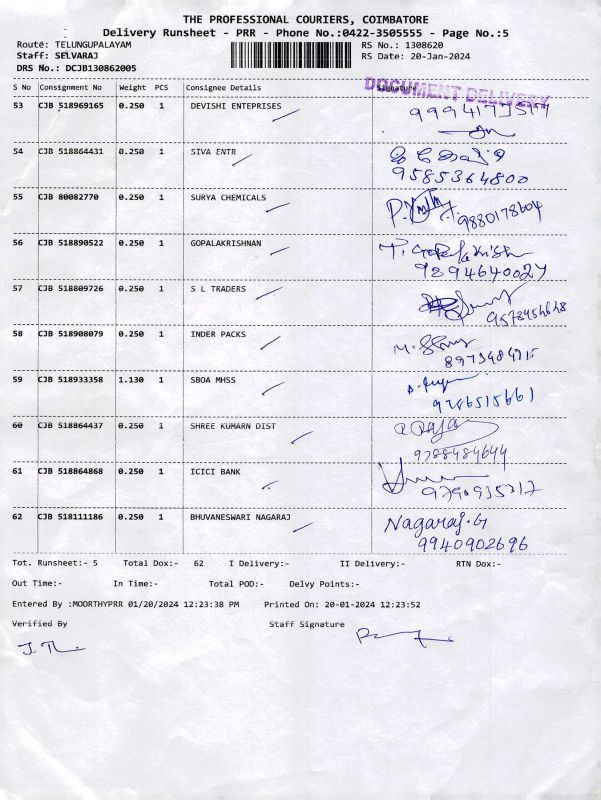 THE PROFESSIONAL COURIERS, COIMBATORE
Delivery Runsheet - PRR - Phone No.:0422-3505555 - Page No.:5
Route: TELUNGUPALAYAM RS No.: 1308620
Staff: SELVARAJ RS Date: 20-Jan-2024
DRS No.: DCJB130862005
DOCUMENT DELIVERY
S No Consignment No Weight PCS Consignee Details Signature
53 CJB 518969165 0.250 1 DEVISHI ENTEPRISES
54 CJB 518864431 0.250 1 SIVA ENTR
9585364800
55 CJB 80082770 0.250 1 SURYA CHEMICALS
9880178604
56 CJB 518890522 0.250 1 GOPALAKRISHNAN
9894640027
57 CJB 518809726 0.250 1 S L TRADERS
58 CJB 518908079 0.250 1 INDER PACKS
59 CJB 518933358 1.130 1 SBOA MHSS
9786515661
60 CJB 518864437 0.250 1 SHREE KUMARN DIST
9788484644
61 CJB 518864868 0.250 1 ICICI BANK
62 CJB 518111186 0.250 1 BHUVANESWARI NAGARAJ Nagaraj.G
9940902696
Tot. Runsheet:- 5 Total Dox:- 62 I Delivery:- II Delivery:- RTN Dox:-
Out Time:- In Time:- Total POD:- Delvy Points:-
Entered By :MOORTHYPRR 01/20/2024 12:23:38 PM Printed On: 20-01-2024 12:23:52
Verified By Staff Signature